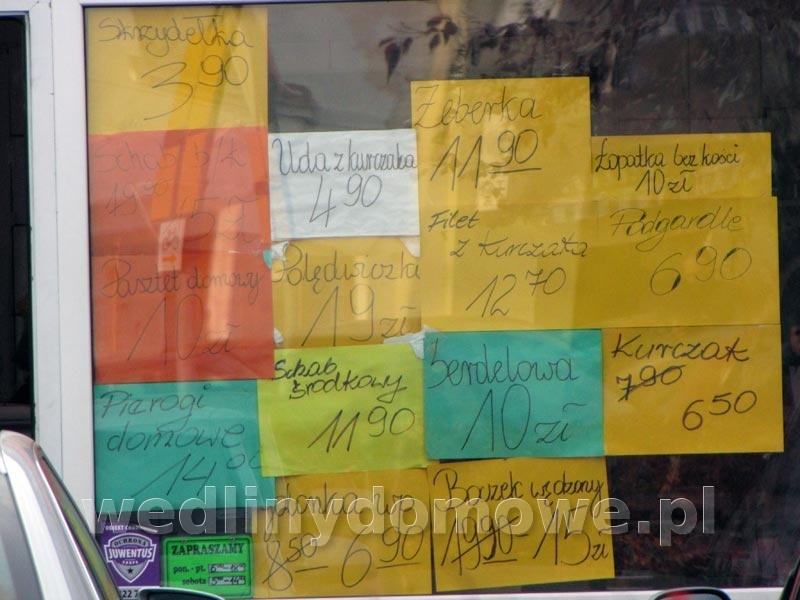 Skrzydełka
3 90
Schab b/k
15 zł
Pasztet domowy
10 zł
Pierogi
domowe
14 00
Uda z kurczaka
4 90
Polędwiczka
19 zł
Schab
środkowy
11 90
8 50 6 90
Żeberka
11 90
Filet
z kurczaka
12 70
Serdelowa
10 zł
Boczek wędzony
19 90 15 zł
Łopatka bez kości
10 zł
Podgardle
6 90
Kurczak
7 90
6 50
OCHRONA
JUWENTUS
ZAPRASZAMY
pon. - pt.
sobota
wedlinydomowe.pl